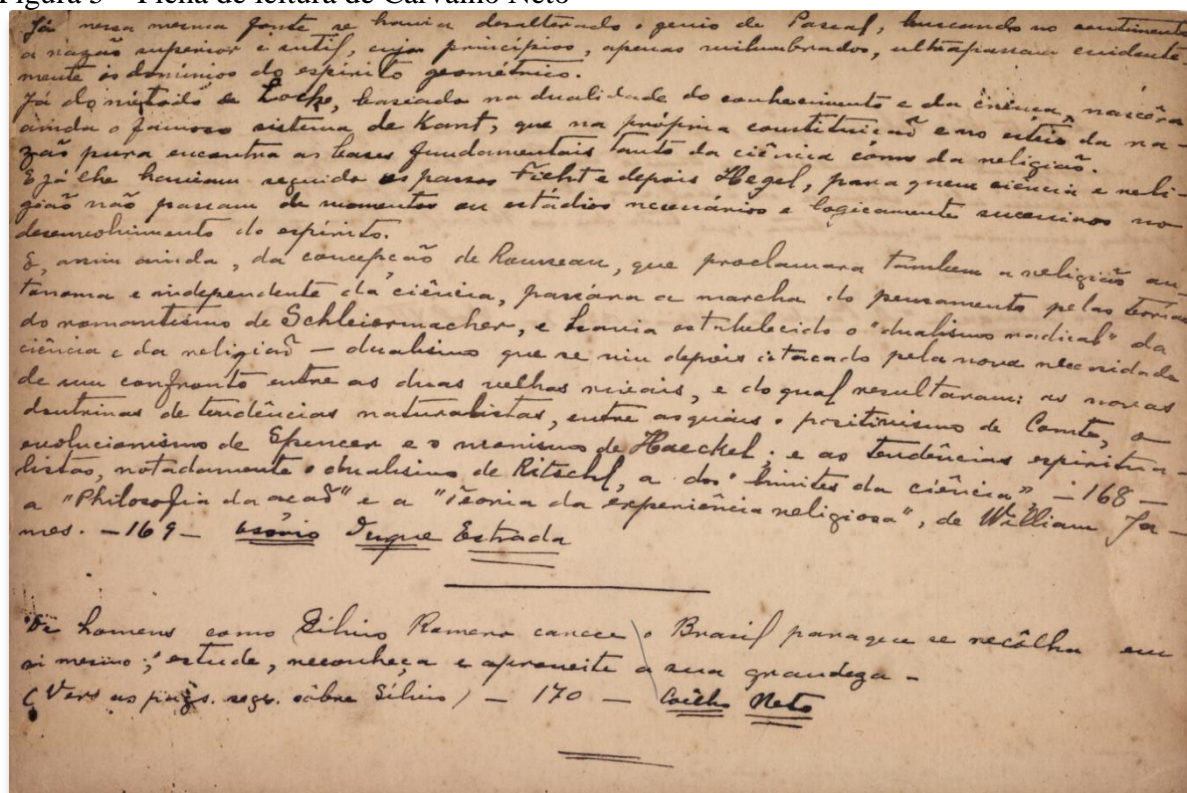 Figura 3 – Ficha de leitura de Carvalho Neto
Já nessa mesma fonte se havia desalterado o genio de Pascal, buscando no sentimento
a razão superior e sutil, cujos princípios, apenas vislumbrados, ultrapassam evidente-
mente os domínios do espírito geométrico.
Já do método de Locke, baseado na dualidade do conhecimento e da crença, nascêra
ainda o famoso sistema de Kant, que na própria constituição e no esteio da ra-
zão pura encontra as bases fundamentais tanto da ciência como da religião.
E já lhe haviam seguido os passos Ficht e depois Hegel, para quem ciência e reli-
gião não passam de momentos ou estádios necessários e logicamente sucessivos no
desenvolvimento do espírito.
E, assim ainda, da concepção de Rousseau, que proclamara tambem a religião au-
tonoma e independente da ciência, passára a marcha do pensamento pelas teorias
do romantismo de Schleiermacher, e havia estabelecido o "dualismo radical" da
ciência e da religião — dualismo que se viu depois atacado pela nova necessidade
de um confronto entre as duas velhas rivais, e do qual resultaram: as novas
doutrinas de tendências naturalistas, entre as quais o positivismo de Comte, o
evolucionismo de Spencer e o monismo de Haeckel; e as tendências espiritua-
listas, notadamente o dualismo de Ritschl, a dos "limites da ciência", — 168 —
a "Philosofia da acaõ" e a "Teoria da experiência religiosa", de William Ja-
mes. — 169 — Osório Duque Estrada
De homens como Silvio Romero carece o Brasil para que se recôlha em
si mesmo; estude, reconheça e aproveite a sua grandeza —
(Vers as pags. segs. sôbre Silvio) — 170 — Coelho Neto